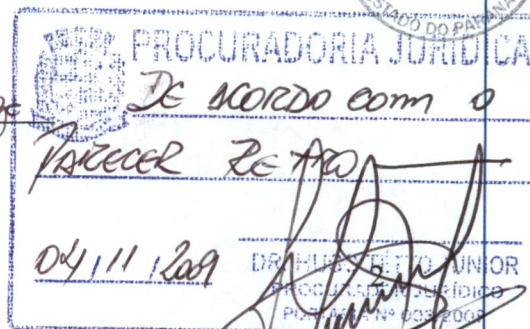 ESTADO DO PARANÁ
PROCURADORIA JURÍDICA
DE ACORDO COM O
PARECER RETRO
04/11/2009
DR. JÚNIOR
PROCURADOR JURÍDICO
PORTARIA Nº 003/2009